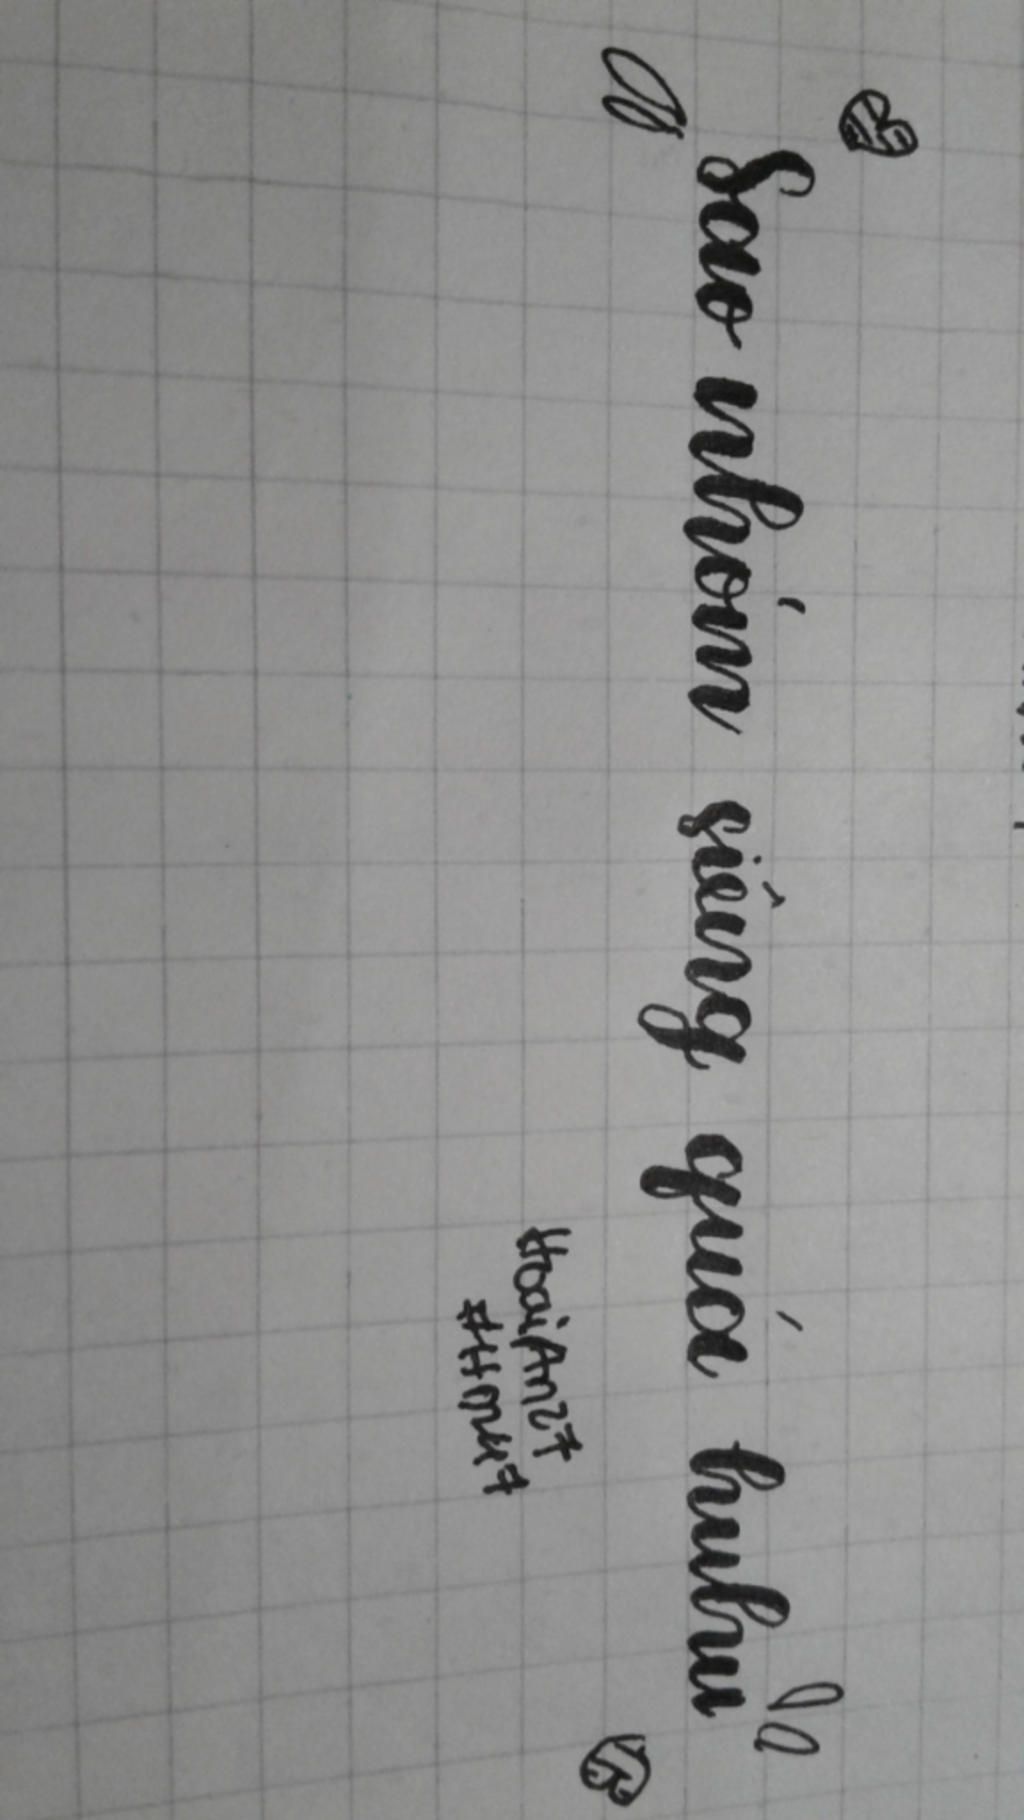 Sao nhóm siêng quá huhu
#HoaiAn27
#Hnu7